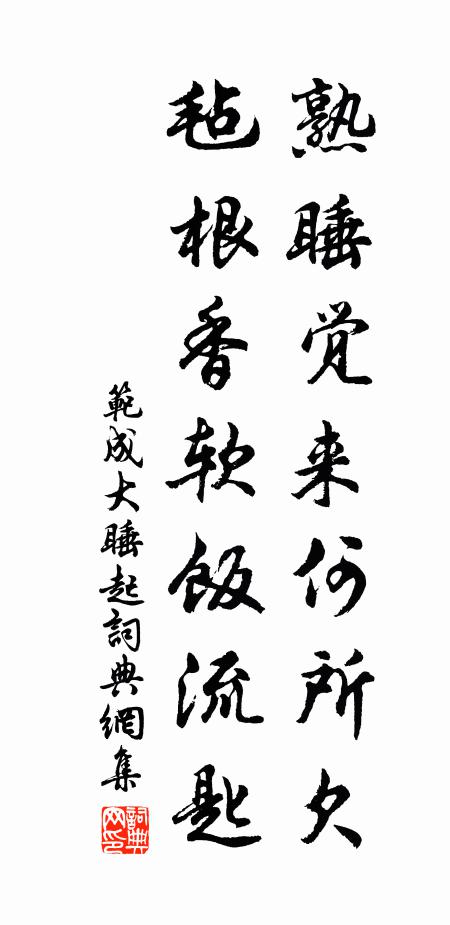 熟睡觉来何所欠
毡根香软饭流匙
範成大睡起詞典網集
詞典网印